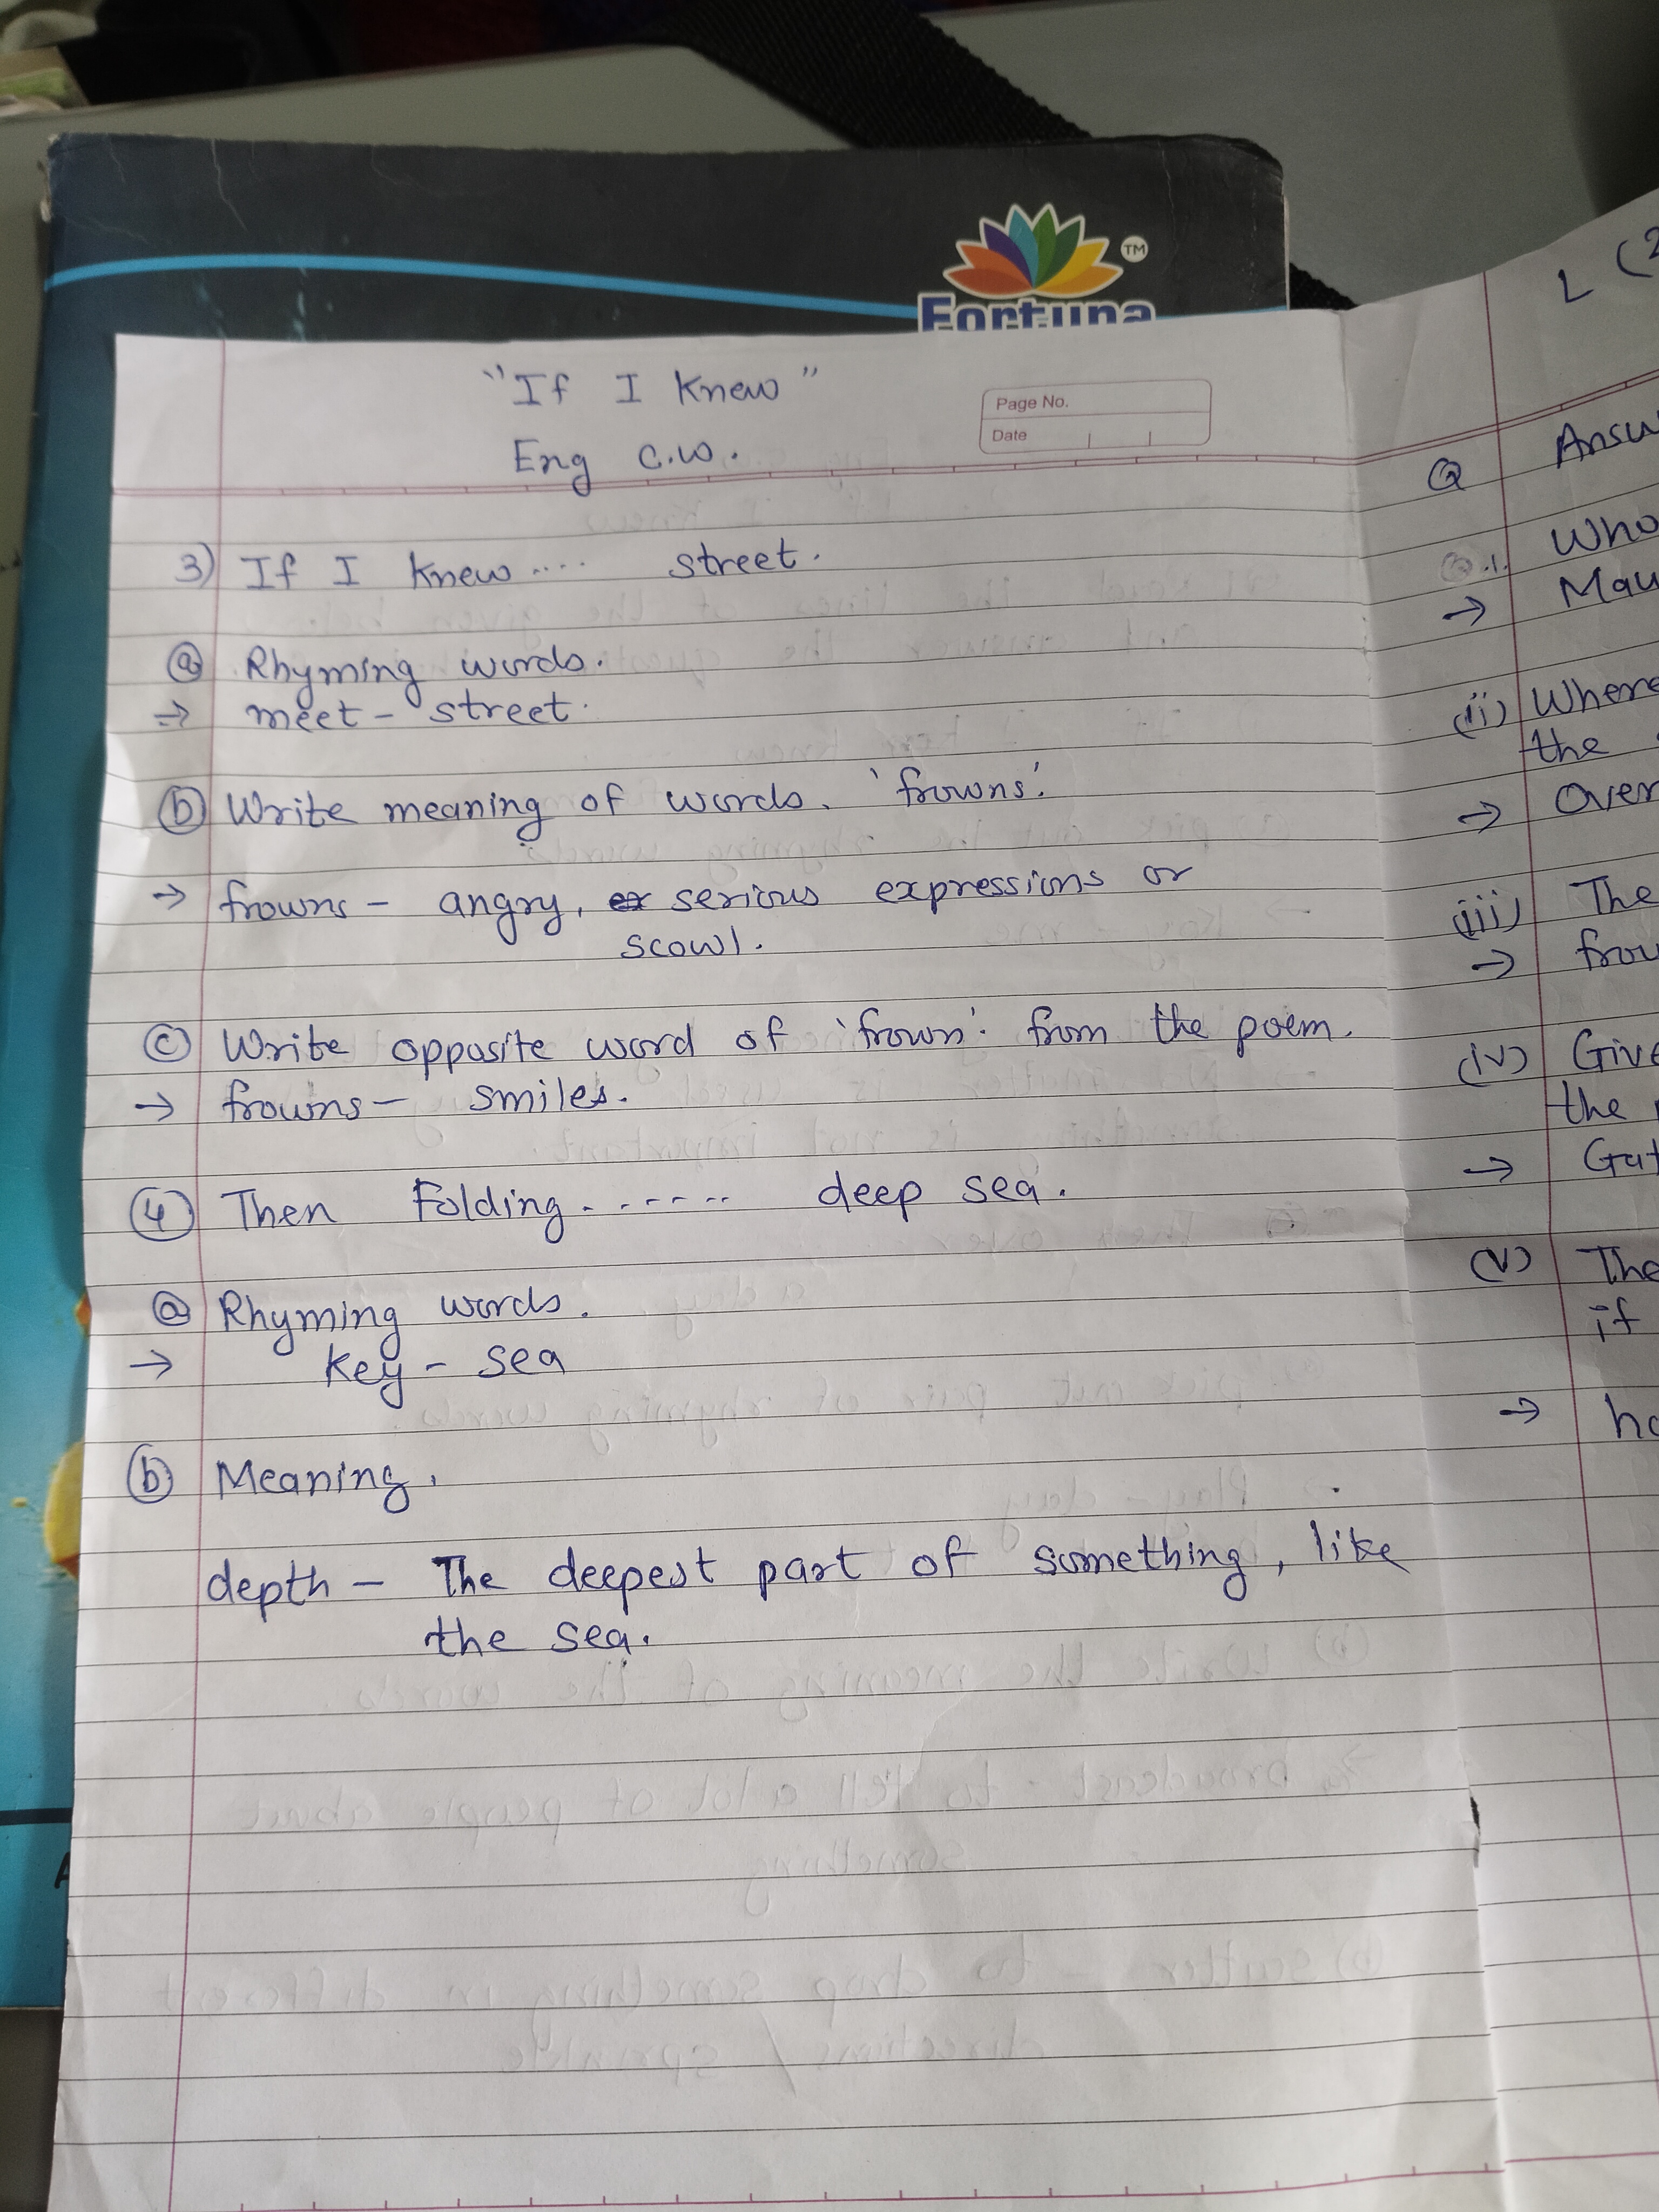 TM
Fortuna
"If I Knew"
Page No.
Date
Eng C.W.
3) If I knew.... street.
(a) Rhyming words.
→ meet - street.
(b) Write meaning of words. 'frowns'.
→ frowns - angry, serious expressions or
scowl.
(c) Write opposite word of 'frown'. from the poem.
→ frowns - smiles.
(4) Then Folding...... deep sea.
(a) Rhyming words.
→ key - sea
(b) Meaning.
depth - The deepest part of something, like
the sea.
L (2
Q
Q.1. Who
→
(ii) Where
the
→ Over
(iii) The
→
(iv) Give
the
→
(v) The
if
→